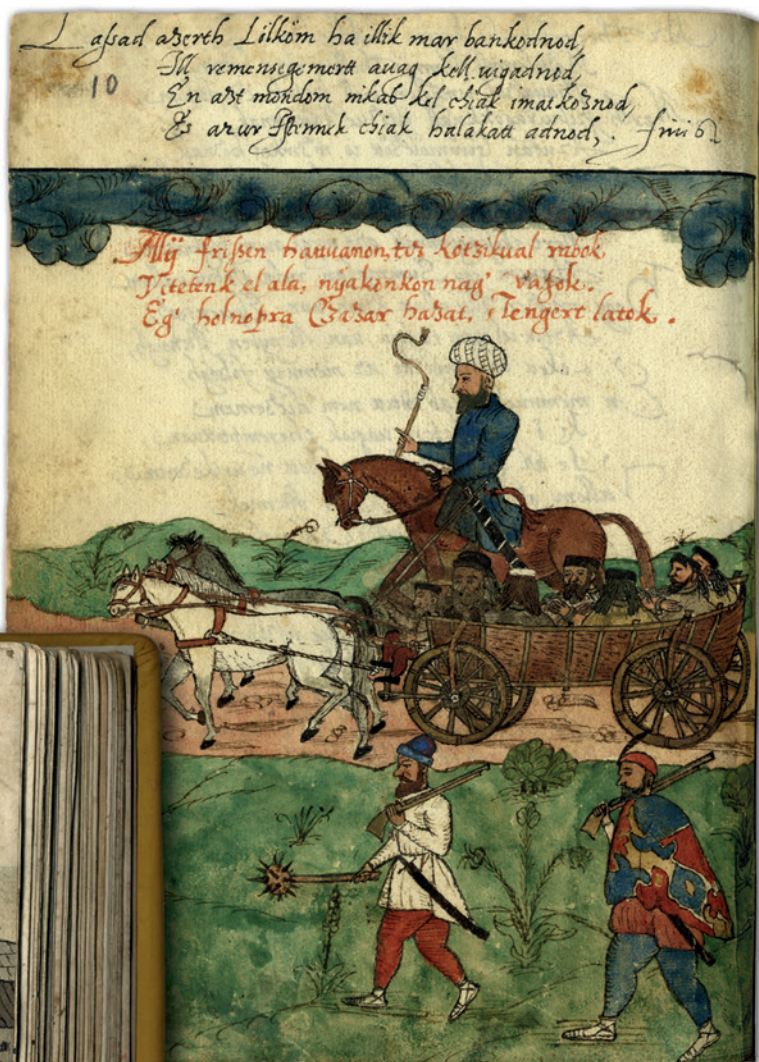 Lassad aszerth Lölköm ha illik mar bankodnod,
Ill remensegemertt auag kell uigadnod,
10
En aszt mondom inkab kel chiak imatkosznod,
Es az ur Istennek chiak halakatt adnod,. finis
Illÿ frissen hauuanon, tiz kotzikual rabok
Vitetenk el ala, nyakonkon nag' vasok.
Eg' holnopra Czaszar haszat, s Tengert latok.